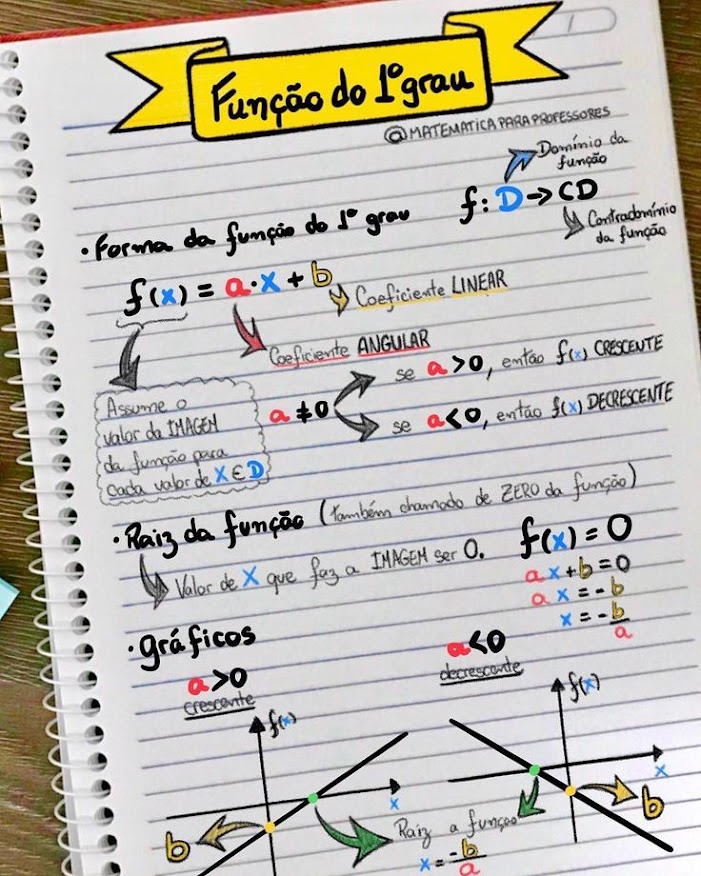 Função do 1º grau
@MATEMATICAPARAPROFESSORES
Domínio da
função
f: D → CD
Contradomínio
da função
• Forma da função do 1º grau
f(x) = a·x + b
Coeficiente LINEAR
Coeficiente ANGULAR
Assume o
valor da IMAGEM
da função para
cada valor de X ∈ D
a ≠ 0
se a > 0, então f(x) CRESCENTE
se a < 0, então f(x) DECRESCENTE
• Raiz da função (também chamado de ZERO da função)
Valor de X que faz a IMAGEM ser 0.
f(x) = 0
ax + b = 0
ax = -b
x = -b/a
• gráficos
a > 0
crescente
a < 0
decrescente
f(x)
x
b
f(x)
x
b
Raiz a função
x = -b/a